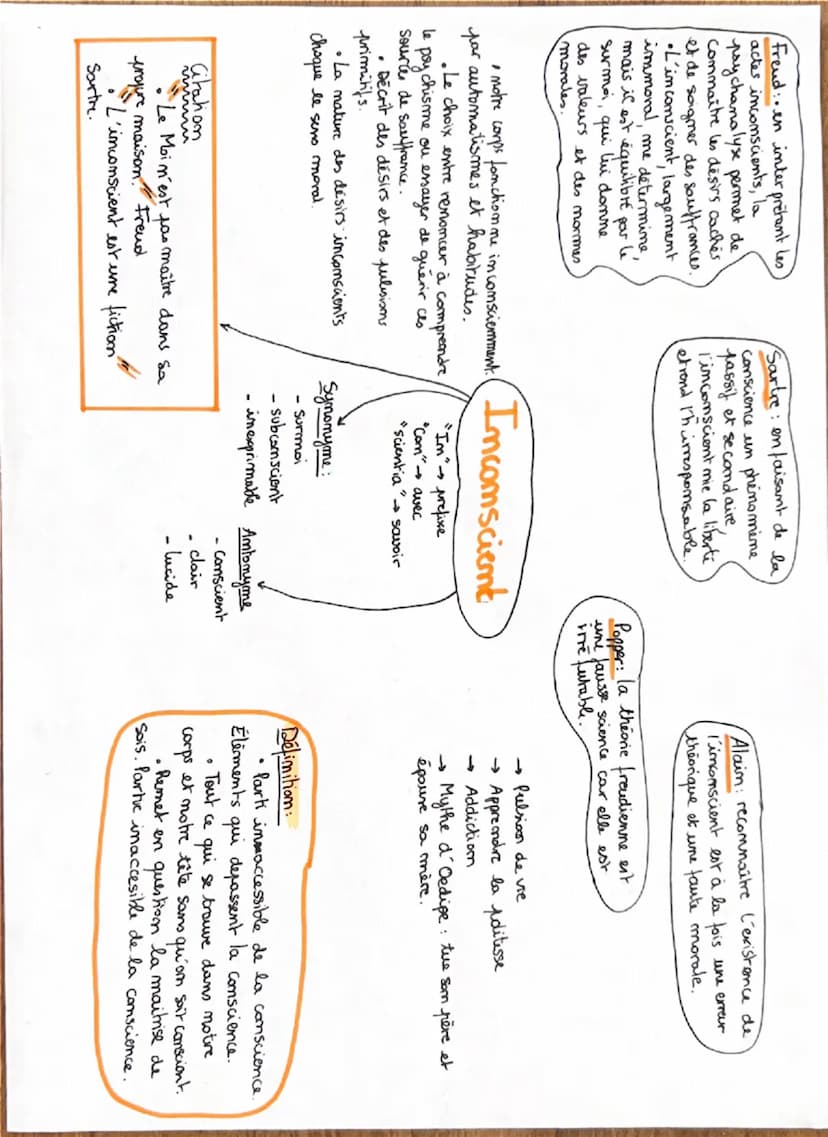 Freud : • en interprétant les
actes inconscients, la
psychanalyse permet de
connaître les désirs cachés
et de soigner des souffrances.
• L'inconscient, largement
immoral, me détermine,
mais il est équilibré par le
surmoi, qui lui donne
des valeurs et des normes
morales.
Sartre : en faisant de la
conscience un phénomène
passif et secondaire,
l'inconscient nie la liberté
et rend l'h irresponsable.
Alain : reconnaître l'existence de
l'inconscient est à la fois une erreur
théorique et une faute morale.
Popper : la théorie freudienne est
une fausse science car elle est
irréfutable.
• notre corps fonctionne inconsciemment
par automatismes et habitudes.
• Le choix entre renoncer à comprendre
le psychisme ou essayer de guérir ces
source de souffrance.
• Décrit des désirs et des pulsions
primitifs.
• La nature des désirs inconscients
choque le sens moral.
Inconscient
"In" → prefixe
"Con" → avec
"scientia" → savoir
→ Pulsion de vie
→ Apprendre la politesse
→ Addiction
→ Mythe d'Oedipe : tue son père et
épouse sa mère.
Synonyme :
- surmoi
- subconscient
- inexprimable
Antonyme
- conscient
- clair
- lucide
Citation
" • Le Moi n'est pas maître dans sa
propre maison. " Freud
" • L'inconscient est une fiction "
Sartre.
Définition :
• Parti innaccessible de la conscience.
Éléments qui depassent la conscience.
• Tout ce qui se trouve dans notre
corps et notre tête sans qu'on soit conscient.
• Remet en question la maitrise de
sois. Partie inaccesible de la conscience.